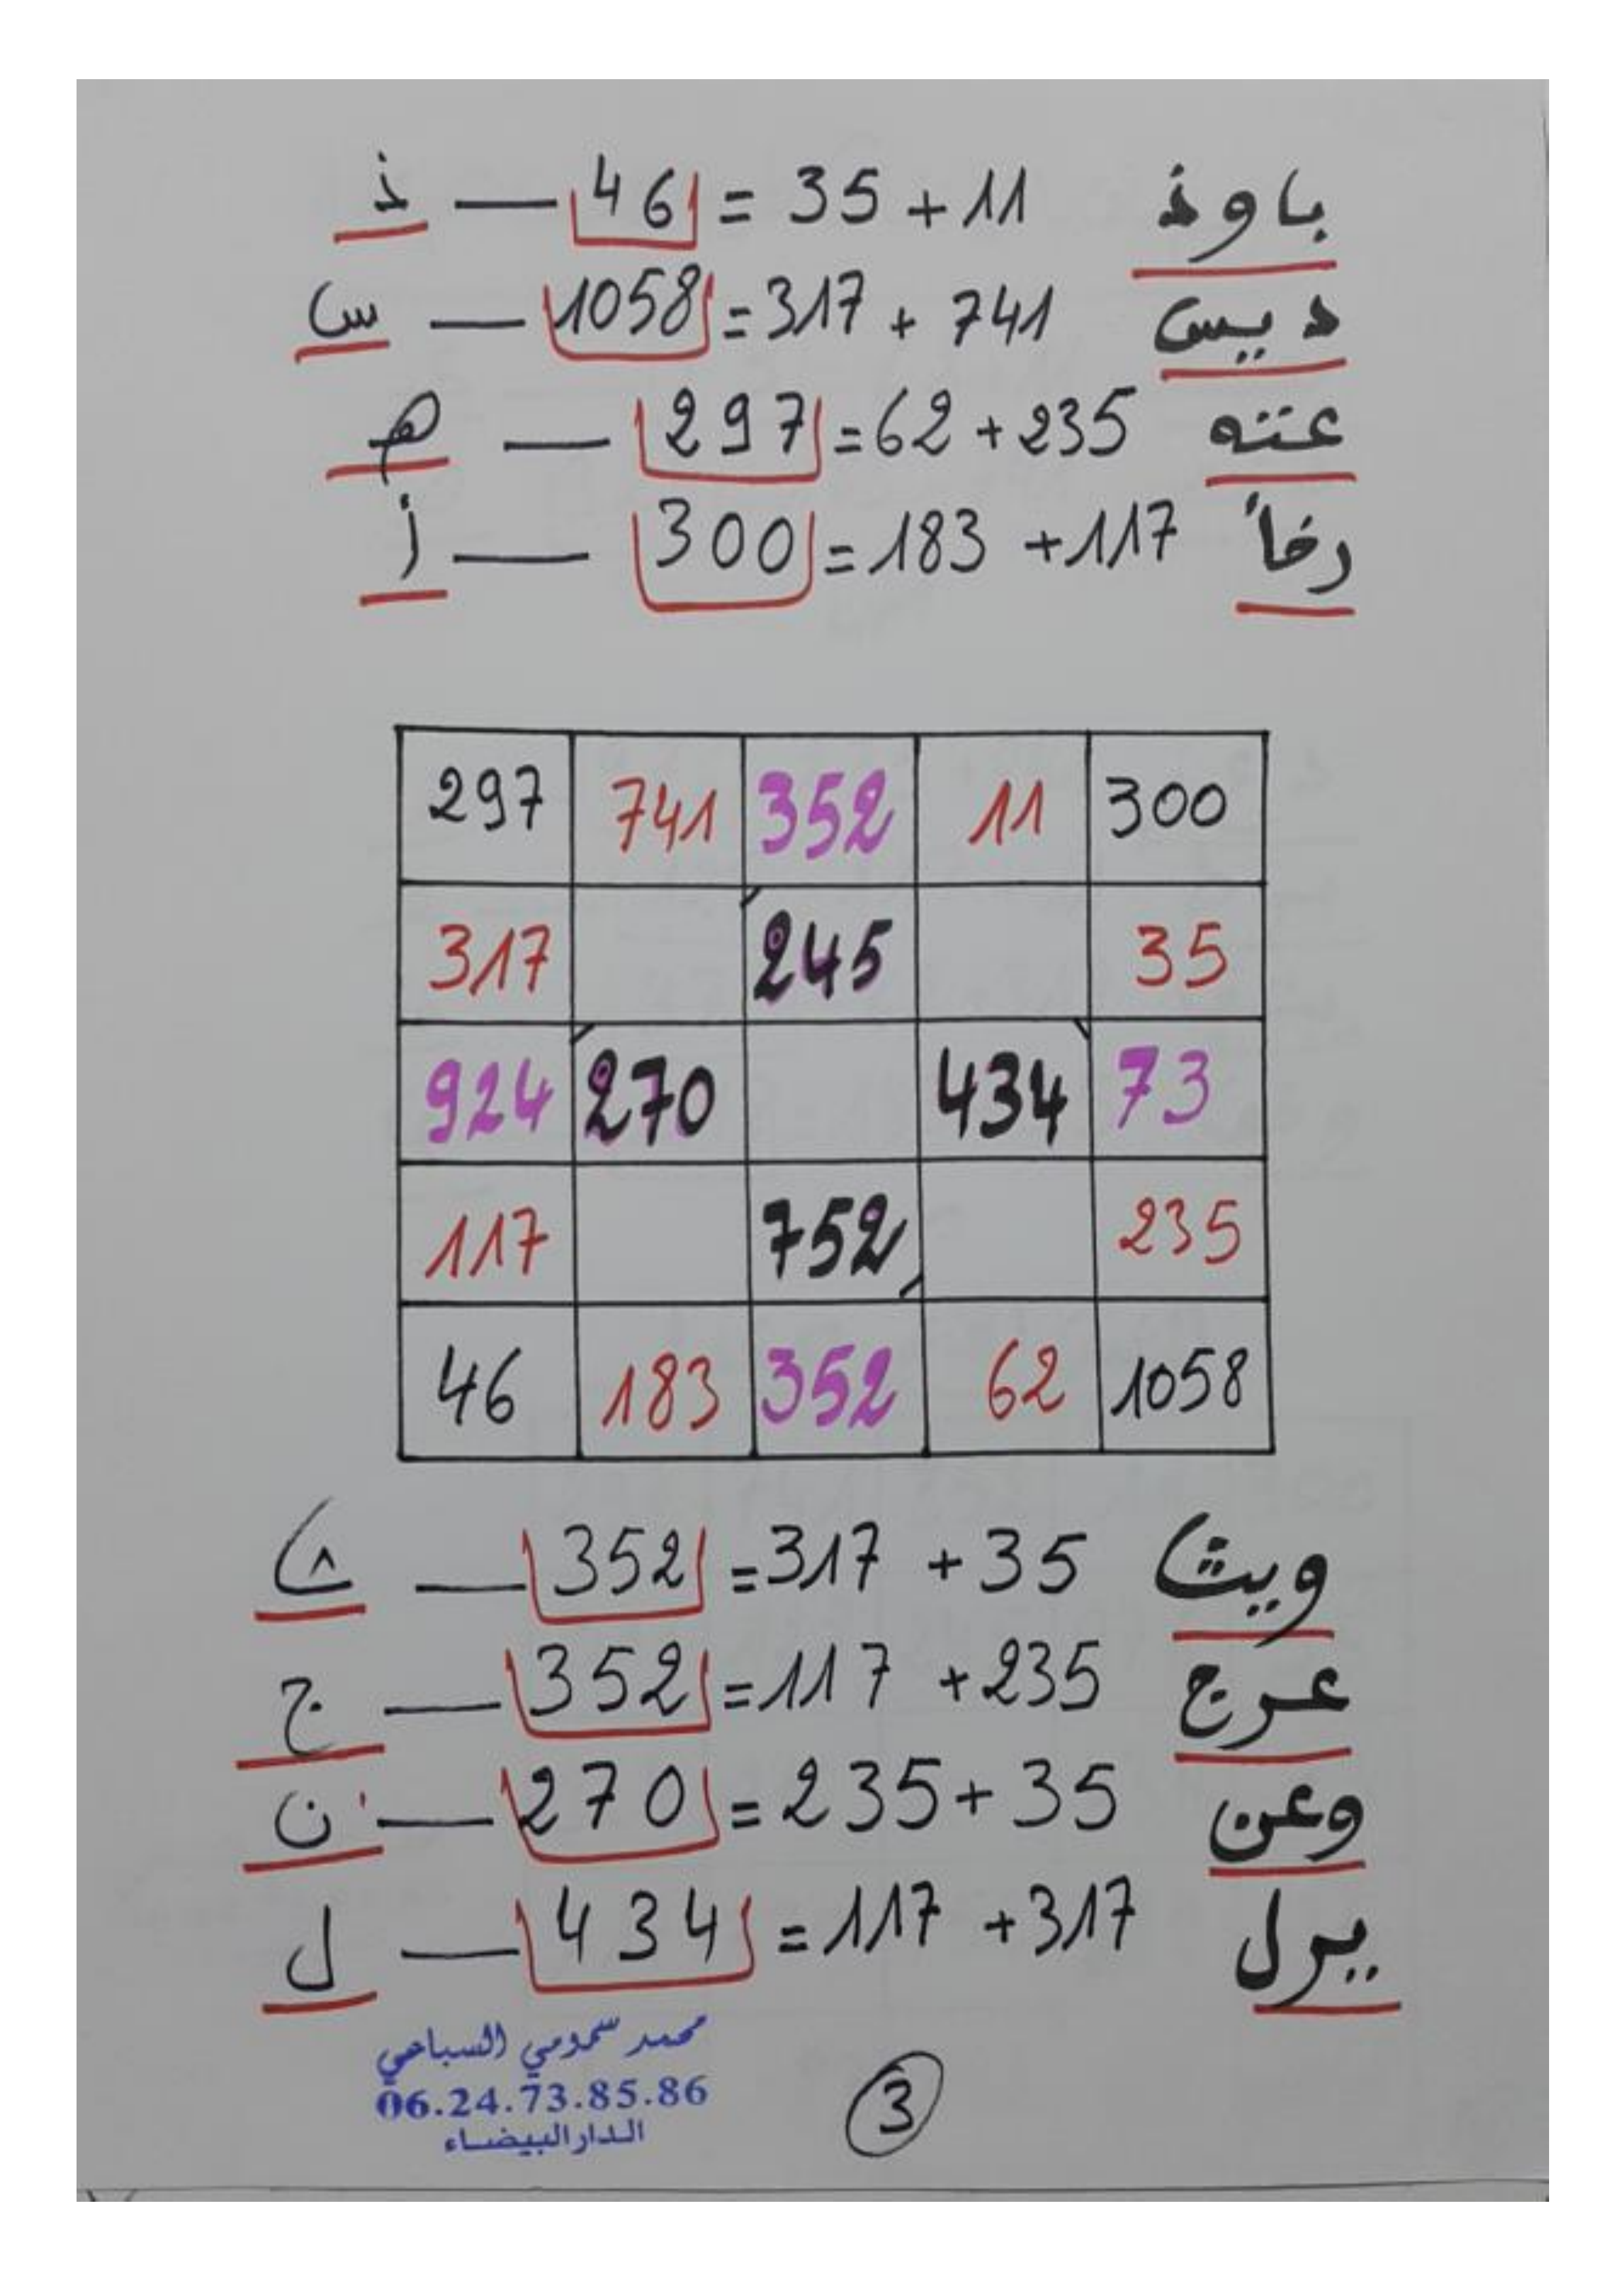 باوذ 11 + 35 = 46 — ذ
ديس 741 + 317 = 1058 — س
عته 235 + 62 = 297 — ه
رخأ 117 + 183 = 300 — أ
297 741 352 11 300
317 245 35
924 270 434 73
117 752 235
46 183 352 62 1058
ويث 35 + 317 = 352 —
عرج 235 + 117 = 352 — ج
وعن 35 + 235 = 270 — ن
يرل 317 + 117 = 434 — ل
محمد سمومي السباعي
06.24.73.85.86
الدار البيضاء
3